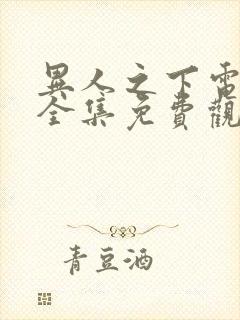 異人之下電
全集免費觀
青豆酒